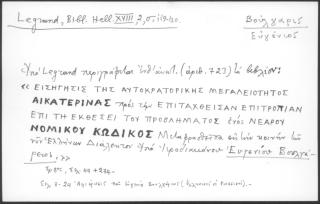 Legrand, Bibl. Hell. XVIII, 2, σ. 119-120.
Βούλγαρις
Εὐγένιος
Ὑπὸ Legrand περιγράφεται ὑπ' ἀριθ. (ἀριθ. 723) τὸ βιβλίον:
«ΕΙΣΗΓΗΣΙΣ ΤΗΣ ΑΥΤΟΚΡΑΤΟΡΙΚΗΣ ΜΕΓΑΛΕΙΟΤΗΤΟΣ
ΑΙΚΑΤΕΡΙΝΑΣ πρὸς τὴν ΕΠΙΤΑΧΘΕΙΣΑΝ ΕΠΙΤΡΟΠΙΑΝ
ΕΠΙ ΤΗ ΕΚΘΕΣΕΙ ΤΟΥ ΠΡΟΒΛΗΜΑΤΟΣ ἑνὸς ΝΕΑΡΟΥ
ΝΟΜΙΚΟΥ ΚΩΔΙΚΟΣ Μεταφρασθεῖσα εἰς τὴν κοινὴν
τῶν Ἑλλήνων Διάλεκτον ὑπὸ Ἱεροδιακόνου Εὐγενίου Βουλγά-
ρεως,»
σελ. 44 + 226
Σελ. 7-24 τοῦ Εὐγενίου Βουλγάρεως